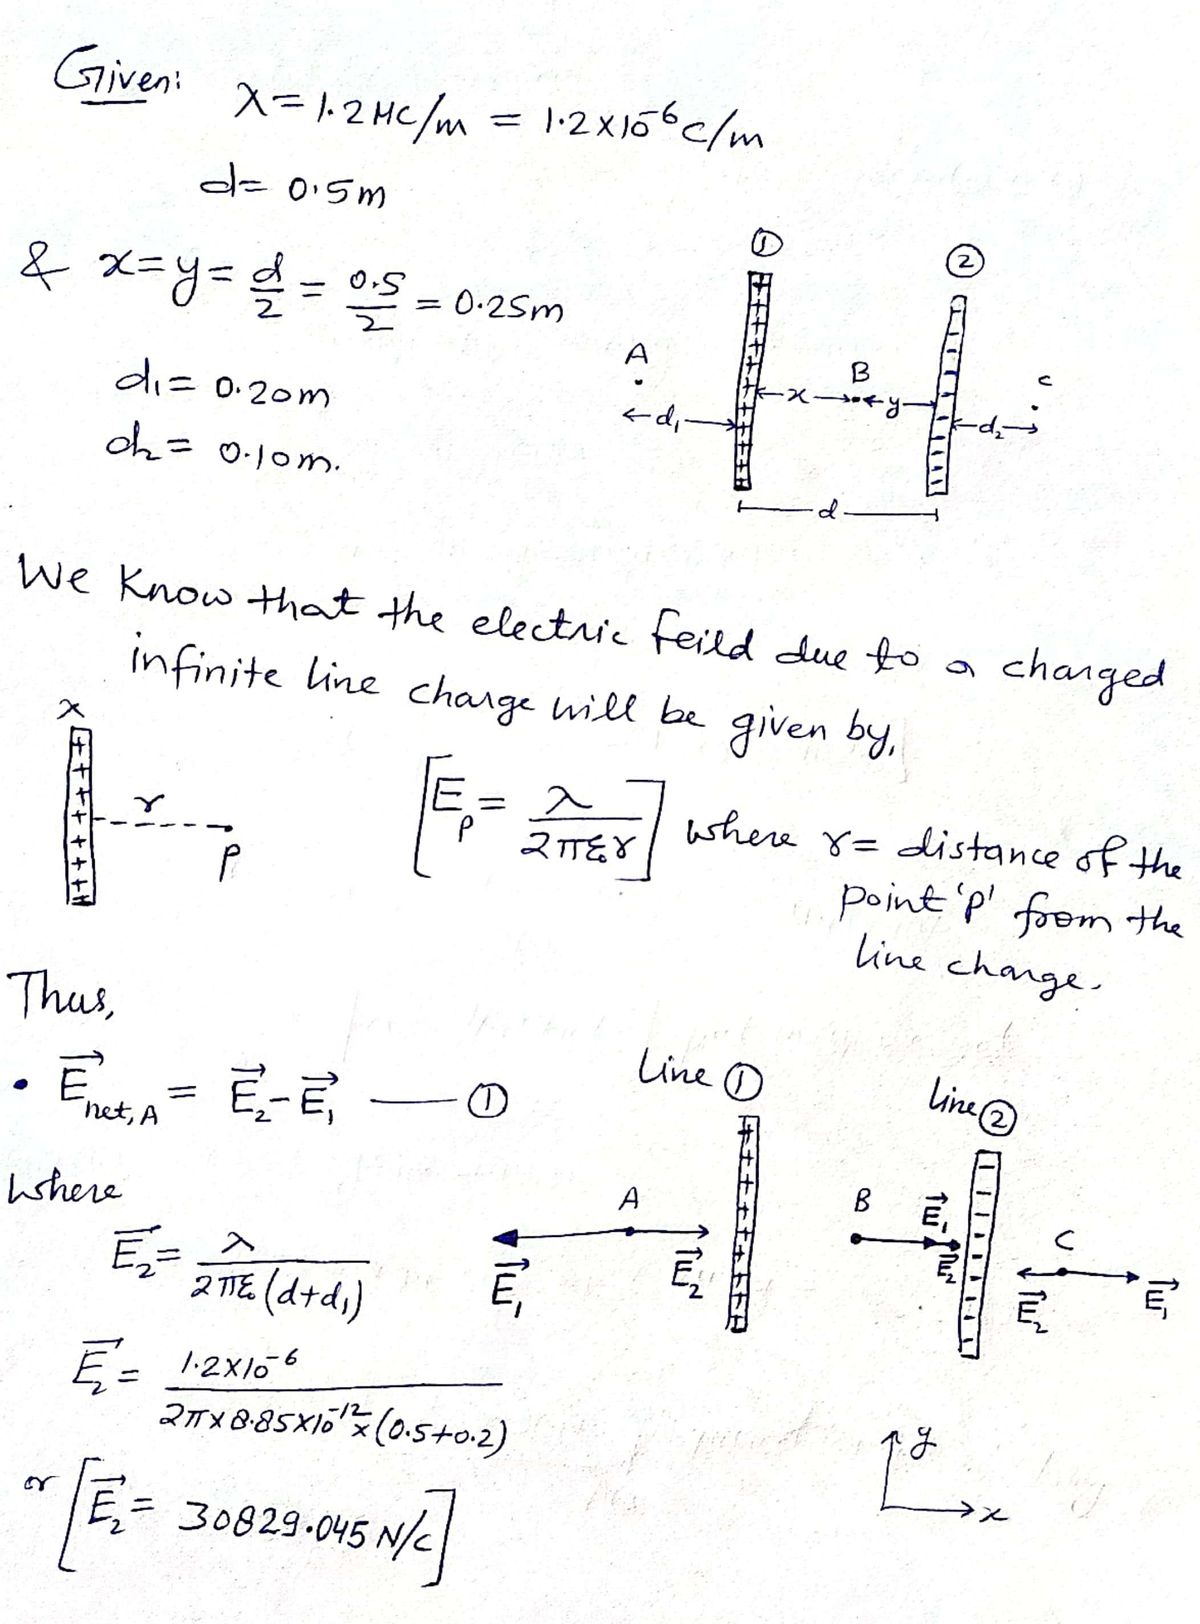 Given:
λ = 1.2 μC/m = 1.2×10⁻⁶ C/m
d = 0.5m
& x = y = d/2 = 0.5/2 = 0.25m
d₁ = 0.20m
d₂ = 0.10m.
① ②
A B C
x y
d₁ d₂
d
We Know that the electric feild due to a charged
infinite line charge will be given by,
λ
r
P
[E_p = λ/2πε₀r] where r = distance of the
point 'p' from the
line charge.
Thus,
• E⃗_net,A = E⃗₂ - E⃗₁ — ①
Line ① Line ②
where
A B C
E⃗₁ E⃗₂ E⃗₁ E⃗₂ E⃗₂ E⃗₁
E⃗₂ = λ/2πε₀(d+d₁)
E⃗₂ = 1.2×10⁻⁶/2π×8.85×10⁻¹²×(0.5+0.2)
y
x
or [E⃗₂ = 30829.045 N/C]